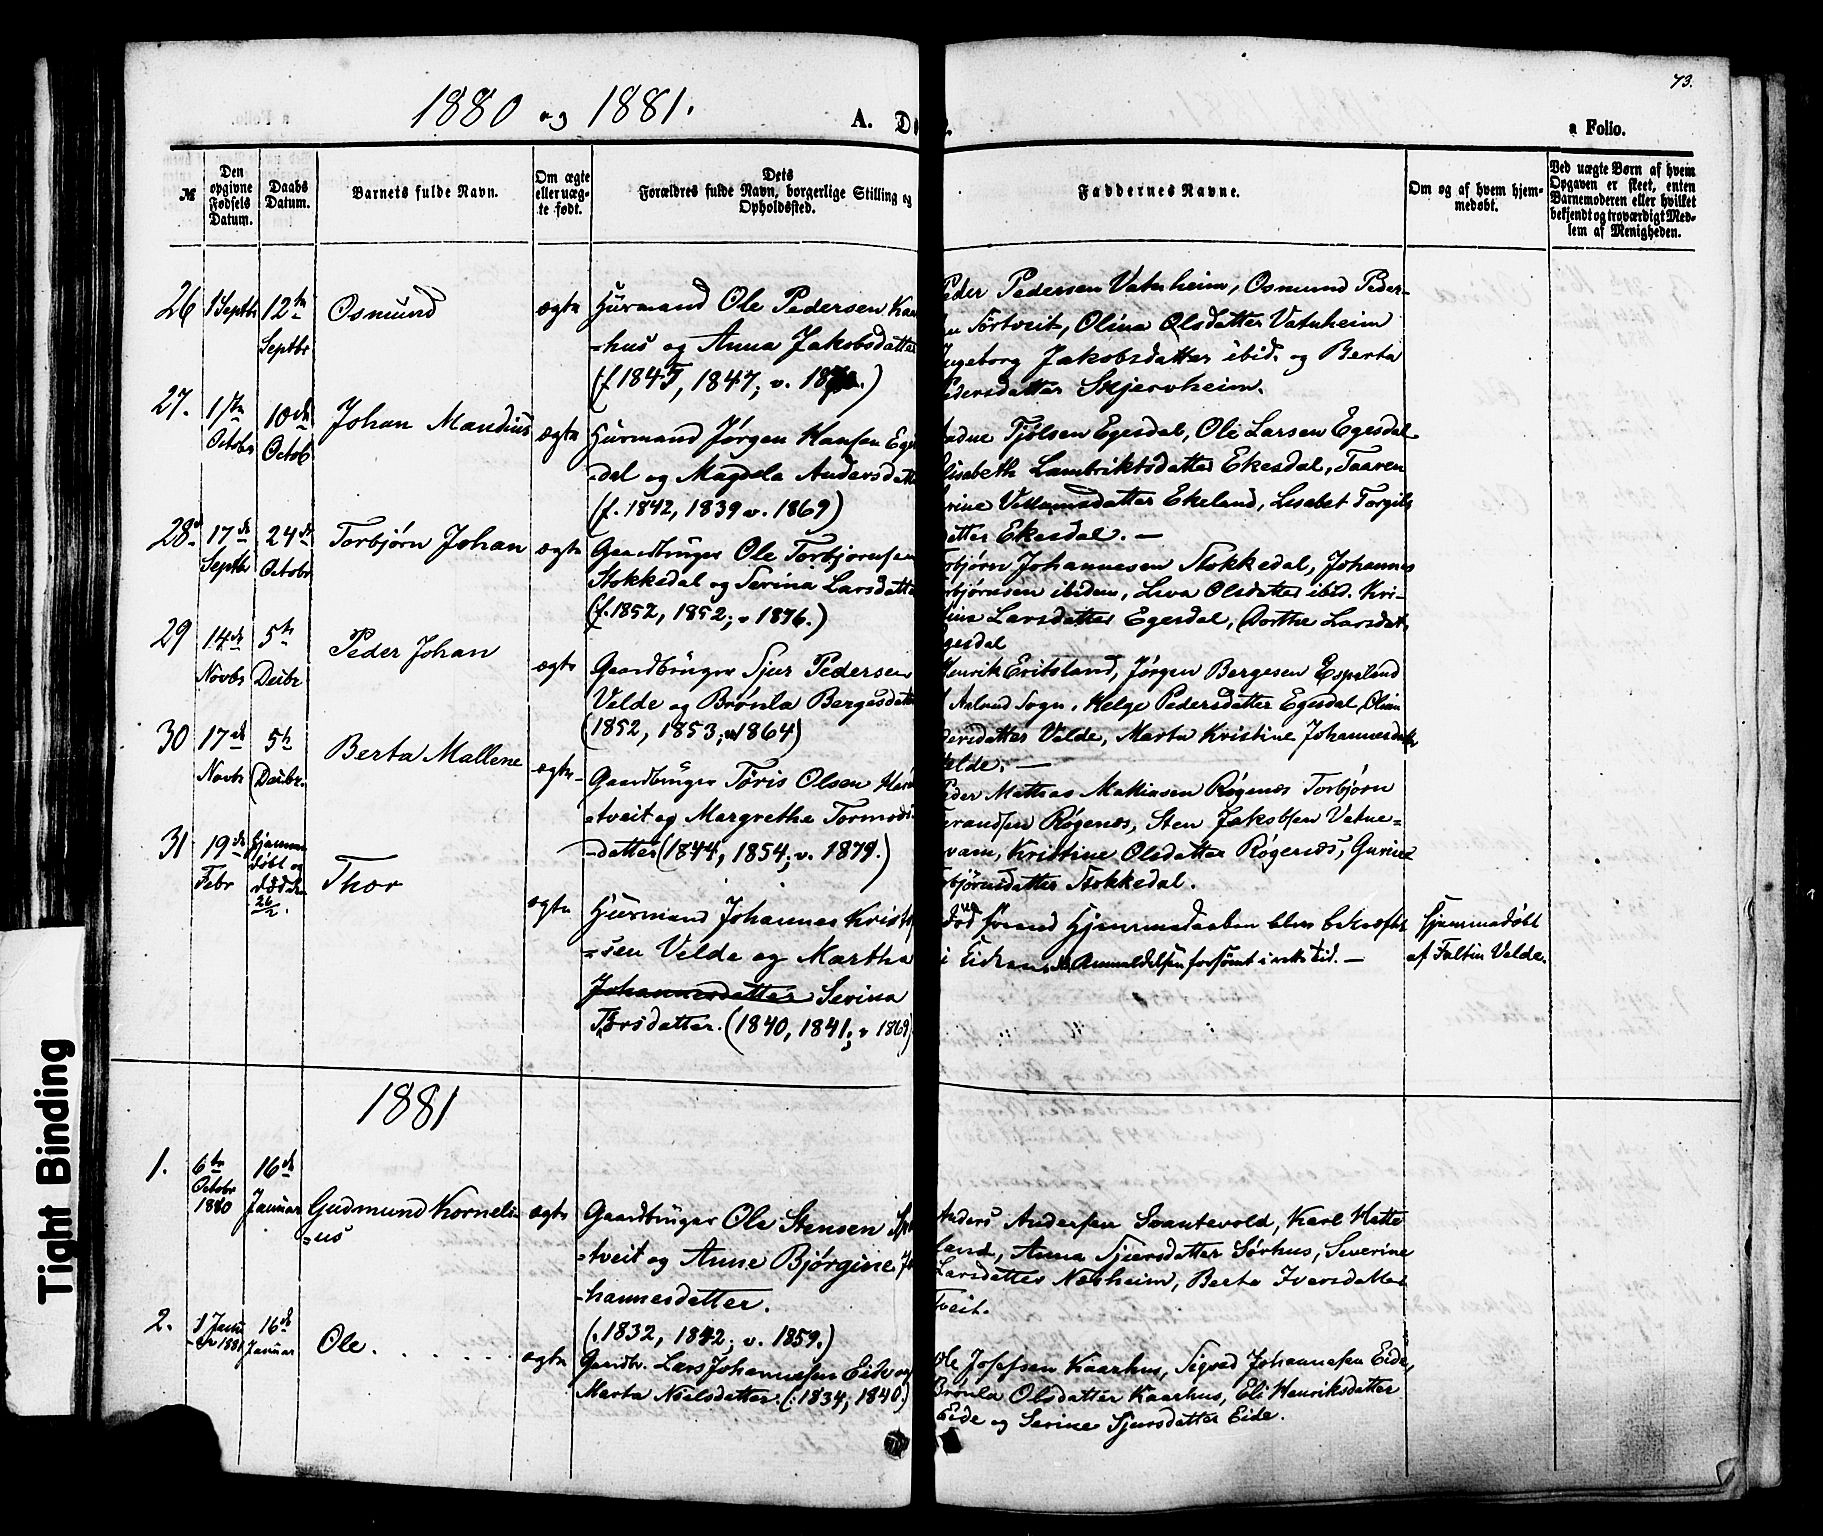 73.
1880 og 1881.
A.
a Folio.
№
Den opgivne Fødsels Datum.
Daabs Datum.
Barnets fulde Navn.
Om ægte eller uægte født.
Dets Forældres fulde Navn, borgerlige Stilling og Opholdssted.
Faddernes Navne.
Om og af hvem hjemmedøbt.
Ved uægte Børn af hvem Opgaven er skeet, enten Barnemoderen eller hvilket bekjendt og troværdigt Medlem af Menigheden.
26 1 Septbr 12te Septbr Osmund ægte
Huusmand Ole Pedersen
-hus og Anna Jakobsdatter
(f. 1845, 1847; v.
Peder Pedersen Vatnheim, Osmund Peder-
Sørtveit, Olina Olsdatter Vatnheim
Ingeborg Jakobsdatter ibid. og Berta
Pedersdatter Skjervheim.
27. 1ste Octobr 10de Octob Johan Mandius ægte
Huusmand Jørgen Hansen
-dal og Magdela Andersdatter
(f. 1842, 1839 v. 1869)
Tjølsen Egesdal, Ole Larsen Egesdal
Elisabeth Lambriktsdatter Ekesdal, Taaren
Ekeland, Lisabet Torgils
datter Ekesdal. —
28 17de Septbr 24de Octobr Torbjørn Johan ægte
Gaardbruger Ole Torbjørnsen
Stokkedal og Serina Larsdatter
(f. 1852, 1852; v 1876.)
Torbjørn Johannesen Stokkedal, Johannes
Torbjørnsen ibidem, Lisa Olsdatter ibid. Kri-
stina Larsdatter Egesdal, Dorthe Larsdat.
Egesdal
29 14de Novbr 5te Decbr Peder Johan ægte
Gaardbruger Sjur Pedersen
Velde og Brønla Bergesdatter
(1852, 1853; v 1864)
Henrik Eritsland, Jørgen Bergesen Espeland
Sogn, Helge Pedersdatter Egesdal, Olina
Pedersdatter Velde, Marta Kristine Johannesdatter
Velde. —
30 17de Novbr 5te Decbr. Berta Mallene ægte
Gaardbruger Tøris Olsen
-tveit og Margrethe Tormods-
-datter (1844, 1854; v. 1879.)
Peder Mathias Mathiasen Røgenes Torbjørn
Røgenes, Sten Jakobsen Vatne-
Kristine Olsdatter Røgenes, Gurine
Torbjørnsdatter Stokkedal.
31 19de Febr Hjemmedøbt og død den 26/2. Thor ægte
Huusmand Johannes
-sen Velde og Martha
Johannesdatter Serina
Torsdatter. (1840, 1841; v 1869)
død forend Hjemmedaaben blev bekræftet
i Kirken, Anmeldelsen forsømt i rette tid. —
Hjemmedøbt
af Faltin Velde.
1881
1. 6te Octobr 1880 16de Januar Gudmund Korneli-
-us ægte
Gaardbruger Ole Stensen
-tveit og Anne Bjørgine Jo-
-hannesdatter.
(. 1832, 1842; v. 1859.)
Anders Andersen Svantevold, Karl Hette
land, Anna Sjursdatter Sørhus, Severine
Larsdatter Nesheim, Berta Iversdatter
Tveit.
2. 1 Janu-
-ar 1881 16de Januar Ole. ægte
Gaardbr. Lars Johannesen Eide og
Marta Nielsdatter. (: 1834; 1840)
Ole Josefsen Kaarhus, Sigvad Johannesen Eide,
Brønla Olsdatter Kaarhus, Eli Henriksdatter
Eide og Serine Sjursdatter Eide.
Tight Binding